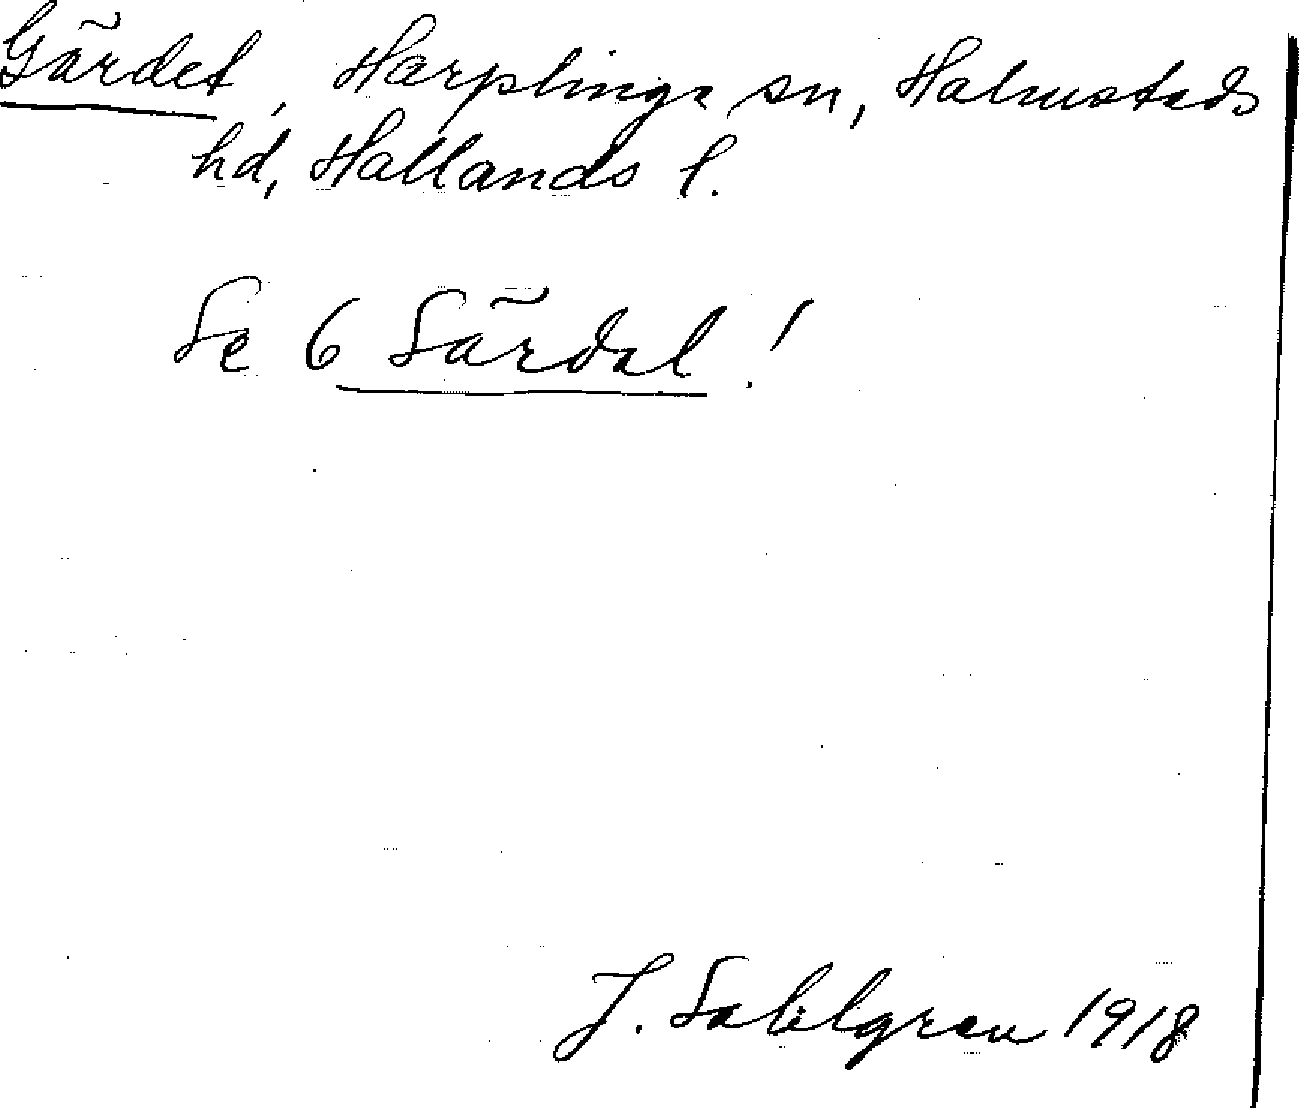 Gärdet, Harplinge sn, Halmstads
hd, Hallands l.
Se 6 Särdal!
J. Sahlgren 1918